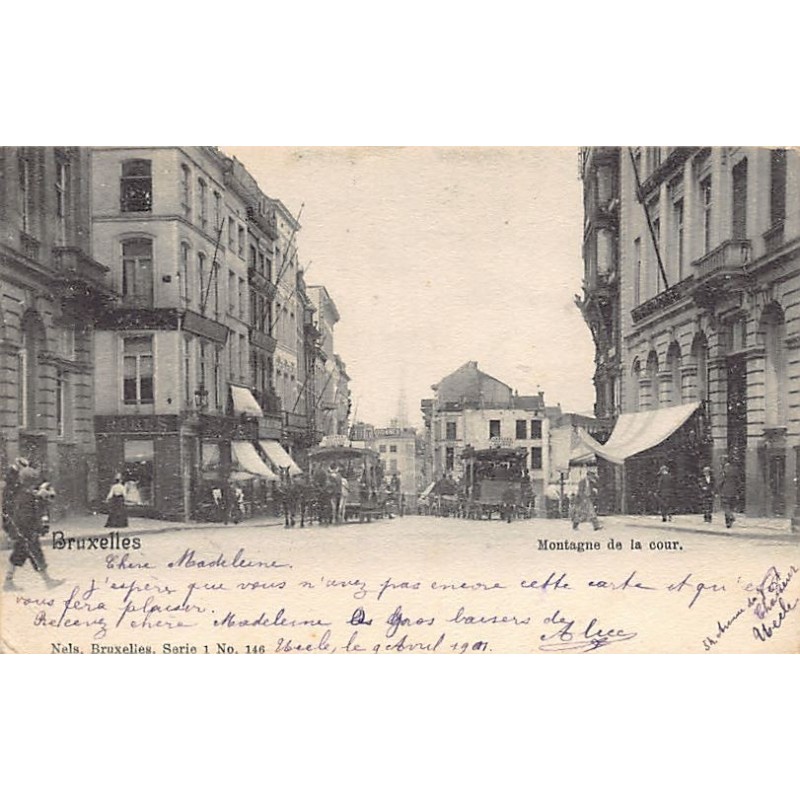 Bruxelles
Montagne de la cour.
Chère Madeleine.
J'espère que vous n'avez pas encore cette carte et qu'e
vous fera plaisir.
Recevez chère Madeleine les gros baisers de Alice
Nels, Bruxelles, Serie 1 No. 146
Uccle, le 9 Avril 1901.
Uccle